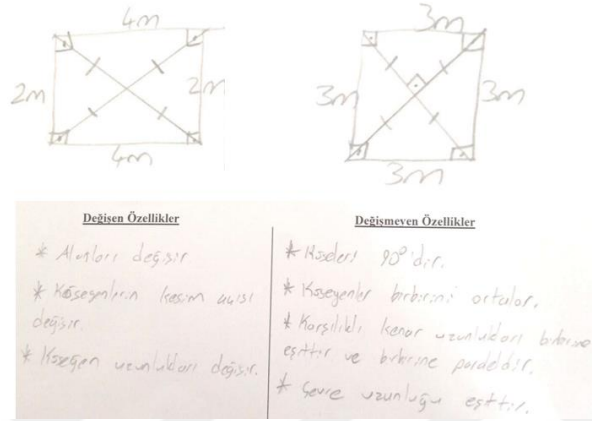 4m
2m
2m
4m
3m
3m
3m
3m
Değişen Özellikler
* Alanları değişir
* Köşegenlerin kesim açısı
değişir.
* Köşegen uzunlukları değişir.
Değişmeyen Özellikler
* Köşeleri 90°'dir.
* Köşegenler birbirini ortalar.
* Karşılıklı kenar uzunlukları birbirine
eşittir ve birbirine paraleldir.
* Çevre uzunluğu eşittir.